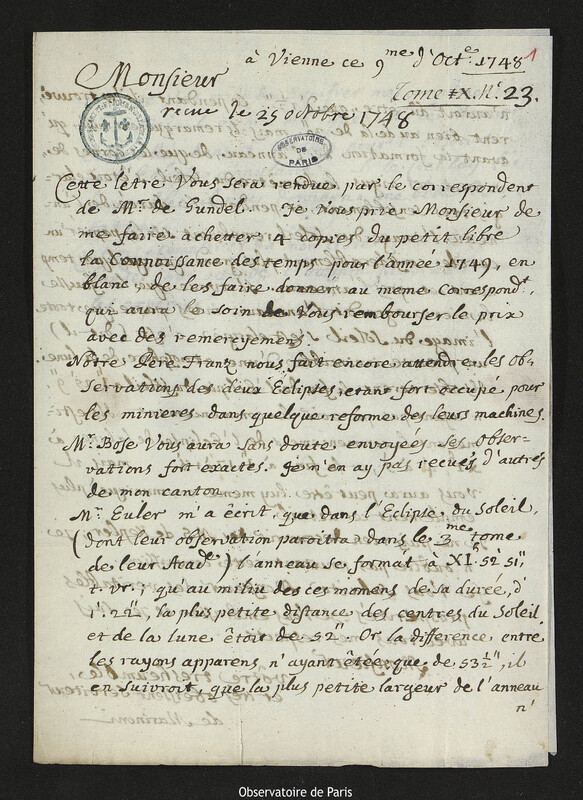 à Vienne ce 9me d'Octe 1748 1
Monsieur
Tome IX. Nr. 23.
recue le 25 octobre 1748
OBSERVATOIRE DE PARIS
Cette letre Vous sera rendue par le correspondent
de Mr. de Gundel. Je Vous prie Monsieur de
me faire achetter 4 copies du petit libre
la Connoissance des temps pour l'année 1749, en
blanc, de les faire donner au meme correspondt,
qui aura le soin de Vous rembourser le prix
avec des remercyemens.
Notre Père Franz nous fait encore attendre les ob-
servations des deux Eclipses, etant fort occupé pour
les minieres dans quelque reforme des leurs machines.
Mr. Bose Vous aura sans doute envoyées ses obser-
vations fort exactes. Je n'en ay pas recues d'autres
de mon canton.
Mr. Euler m'a écrit, que dans l'Eclipse du Soleil,
(dont leur observation paroitra dans le 3me tome
de leur Acade) l'anneau se format à XI. 52' 51"
t. vr.; qu'au miliu des ces momens de sa durée, d'
1'. 22", la plus petite distance des centres du Soleil
et de la lune êtoit de 52". Or la difference entre
les rayons apparens, n'ayant êtée que de 53½", il
en suivroit, que la plus petite largeur de l'anneau
n'
Observatoire de Paris